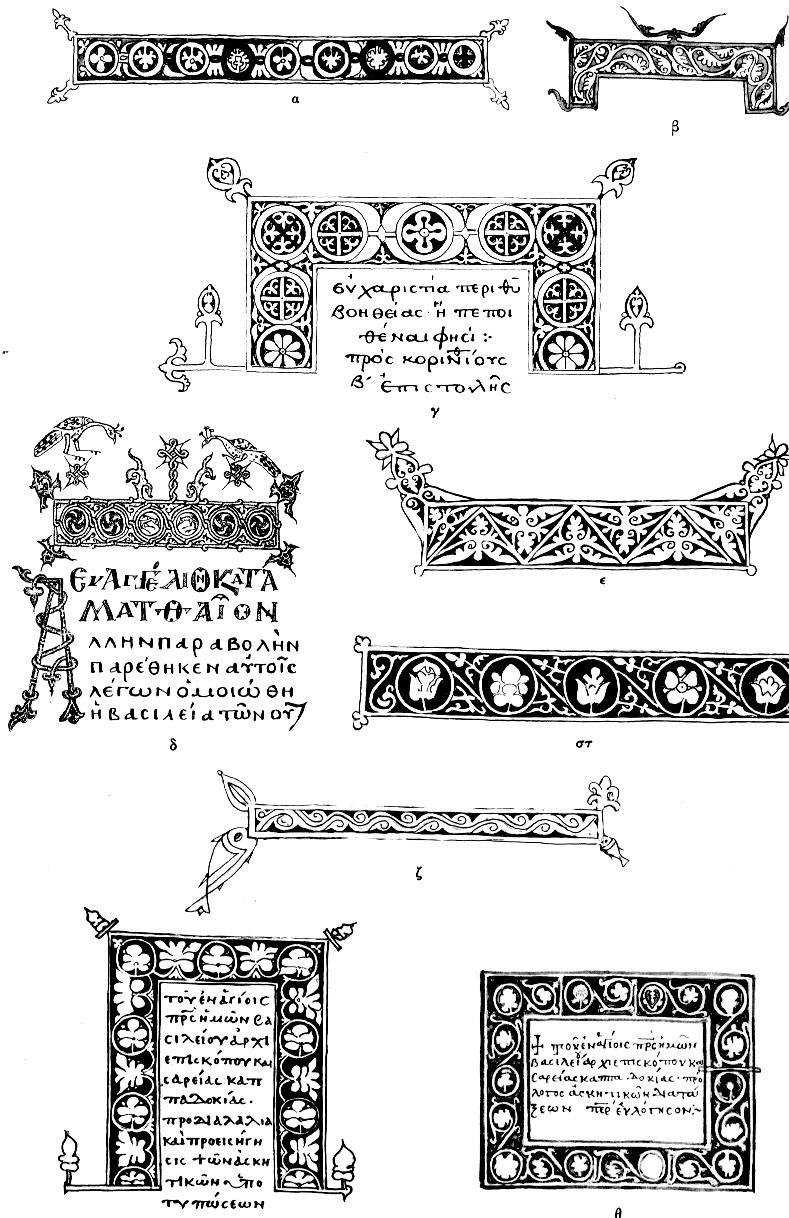 α
β
εὐχαριστία περὶ θυ
βοηθείας· ἢ πεποι
θέναι φησί :·
πρὸς κορινθίους
β´ ἐπιστολῆς
γ
ΕυΑΓΓέΛΙΟΝΚΑΤΑ
ΜΑΤΘΑῖΟΝ
λλην παραβολὴν
παρέθηκεν αὐτοῖς
λέγων ὁμοιώθη
ἡ βασιλεία τῶν οὐ
δ
ε
στ
ζ
τοῦ ἐν ἁγίοις
πρς ἡμῶν βα
σιλείου ἀρχι
επισκόπου και
σαρείας καπ
παδοκίας·
προδιαλαλιὰ
καὶ προεισήγη
σις τῶν ἀσκη
τικῶν ὑπο
τυπώσεων
τοῦ ἐν ἁγίοις πρς ἡμῶν
βασιλείου ἀρχιεπισκόπου και
σαρείας καππαδοκίας· πρό
λογος ἀσκητικῶν διατά
ξεων περ εὐλόγησον :~
θ